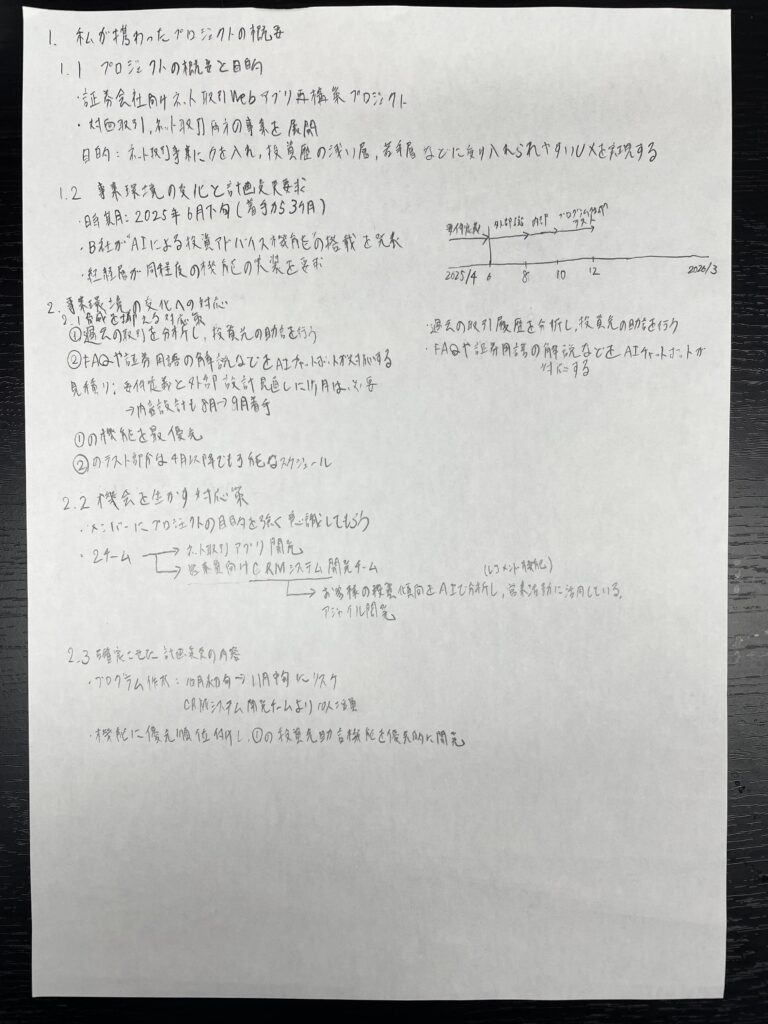 1. 私が携わったプロジェクトの概要
1.1 プロジェクトの概要と目的
・証券会社向けネット取引Webアプリ再構築プロジェクト
・対面取引,ネット取引両方の事業を展開
目的:ネット取引事業に力を入れ,投資歴の浅い層,若手層などに受け入れられやすいUXを実現する
1.2 事業環境の変化と計画変更要求
・時期:2025年6月下旬(着手から3ヶ月)
・B社が「AIによる投資アドバイス機能」の搭載を発表
・経経層が同程度の機能の実装を要求
要件定義 外部設計 内設 プログラム作成 テスト
2025/4 6 8 10 12 2026/3
2. 事業環境の変化への対応
2.1 脅威を抑える対応策
①過去の取引を分析し,投資先の助言を行う
②FAQや証券用語の解説などをAIチャットボットが対応する
見積り:要件定義と外部設計見直しに1ヶ月は必要
→内部設計も8月→9月着手
①の機能を最優先
②のテスト部分は4月以降でも可能なスケジュール
・過去の取引履歴を分析し,投資先の助言を行う
・FAQや証券用語の解説などをAIチャットボットが
対応する
2.2 機会を生かす対応策
・メンバーにプロジェクトの目的を強く意識してもらう
・2チーム → ネット取引アプリ開発
→ 営業員向けCRMシステム開発チーム
(レコメンド機能)
→ お客様の投資傾向をAIで分析し,営業活動に活用している.
アジャイル開発
2.3 確定させた計画変更の内容
・プログラム作成:10月初旬→11月中旬にリスケ
CRMシステム開発チームより
・機能に優先順位付けし,①の投資先助言機能を優先的に開発